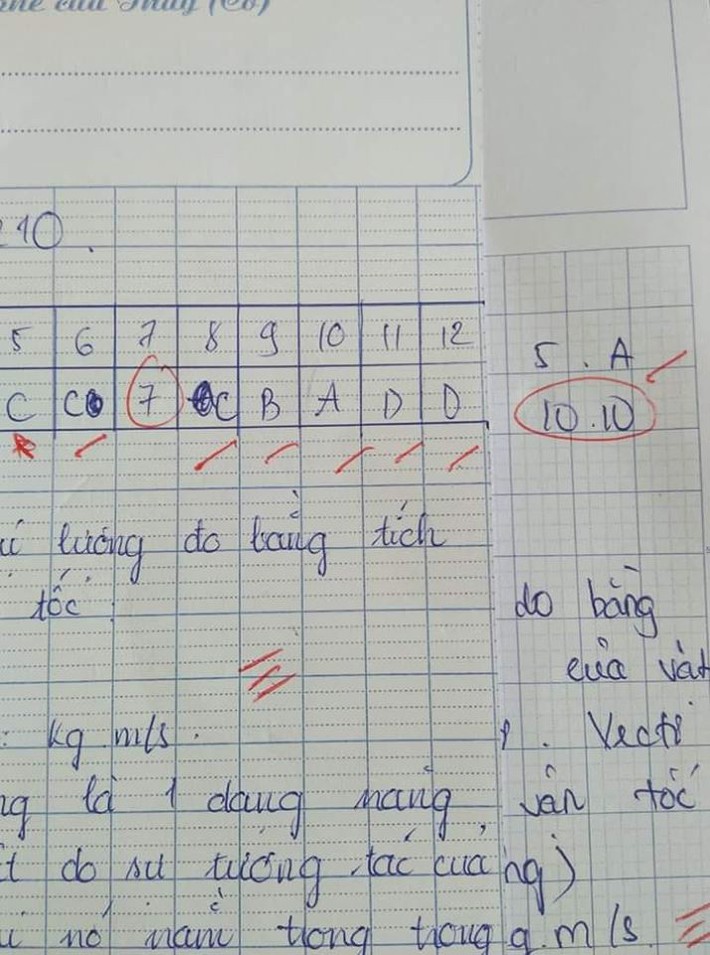 của Thầy (Cô)
10.
5 6 7 8 9 10 11 12
C C 7 C B A D D
5. A
10.10
lượng đo bằng tích
tốc
đo bằng
của vật
kg m/s.
Vectơ
là 1 dạng năng
vận tốc
do sự tương tác của
nó nằm trong trọng
m/s